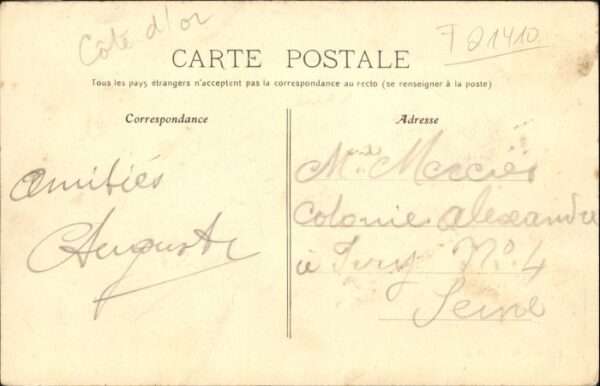 Côte d'or
F 21410
CARTE POSTALE
Tous les pays étrangers n'acceptent pas la correspondance au recto (se renseigner à la poste)
Correspondance
Adresse
Amitiés
Auguste
Mme Mercier
Colonie Alexandre
à Ivry No. 4
Seine